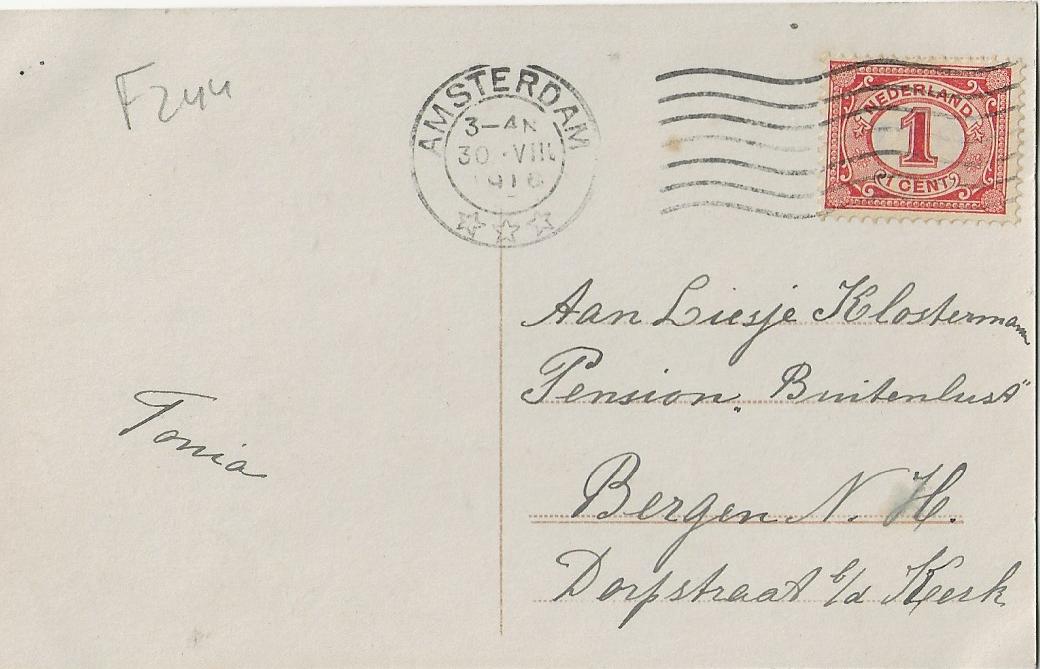 F244
AMSTERDAM
3-4N
30.VIII
191
NEDERLAND
1
1 CENT
Aan Liesje Klostermann
Pension „Buitenlust"
Bergen N. H.
Dorpstraat b/d Kerk
Tonia